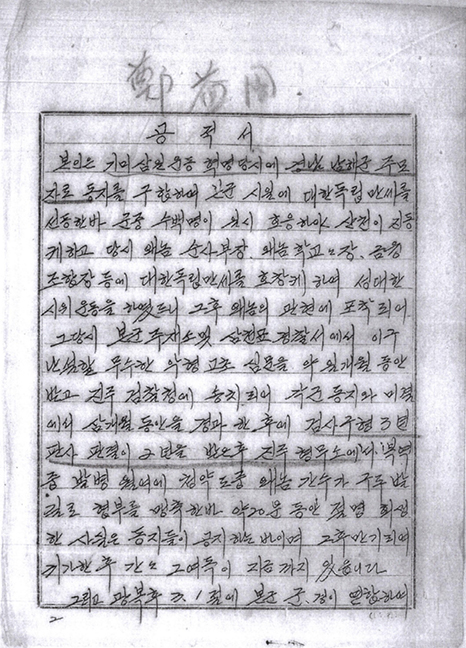 鄭 益 周
공 적 서
본인은 기미 삼월운동 혁명당시에 경남 남해군 주모
자로 동지를 구합하여 군 시위에 대한독립만세를
선동한바 군중 수백명이 일시 호응하야 산천이 진동
케하고 당시 왜놈 순사부장, 왜놈학교교장, 금융
조합장 등에 대한독립만세를 호창케 하여 성대한
시위운동을 하였드니 그후 왜놈의 관헌에 포착되어
그당시 본군 주재소 및 삼천포 경찰서에서 이구
난설할 무수한 악형 고초 심문을 약 개월 동안
받고 진주 검찰청에 송치되어 각군 동지와 미결
에서 삼개월 동안을 경과한 후에 검사구형 3년
판사 판결이 2년을 받은후 진주형무소에서 복역
중 발병 되어 도중 왜놈 간수가 구두발
길로 협부를 한바 약20분 동안 절명 회생
한 사실은 동지들이 공지하는 바이며 그후 만기되여
귀가한 후 간간 그여독이 지금까지 있읍니다
그리고 광복후 3.1절에 본군 군, 경이 연합하여
2